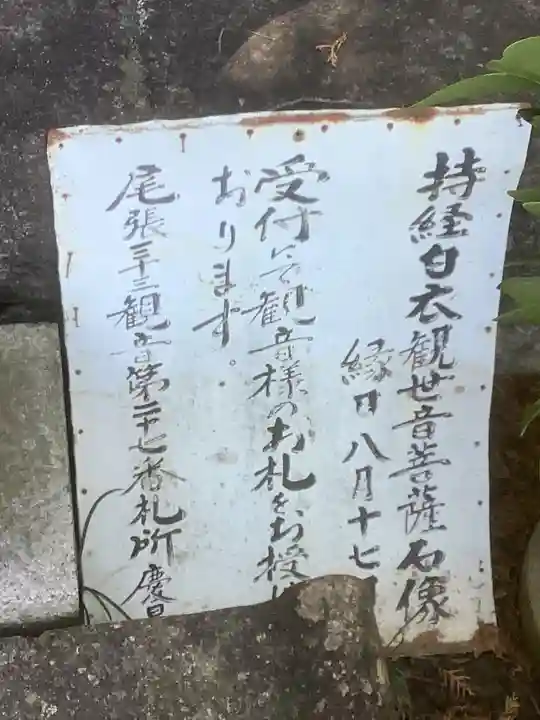 持経白衣観世音菩薩石像
縁日八月十七
受付にて観音様のお札をお授け
おります。
尾張三十三観音第二十七番札所慶昌